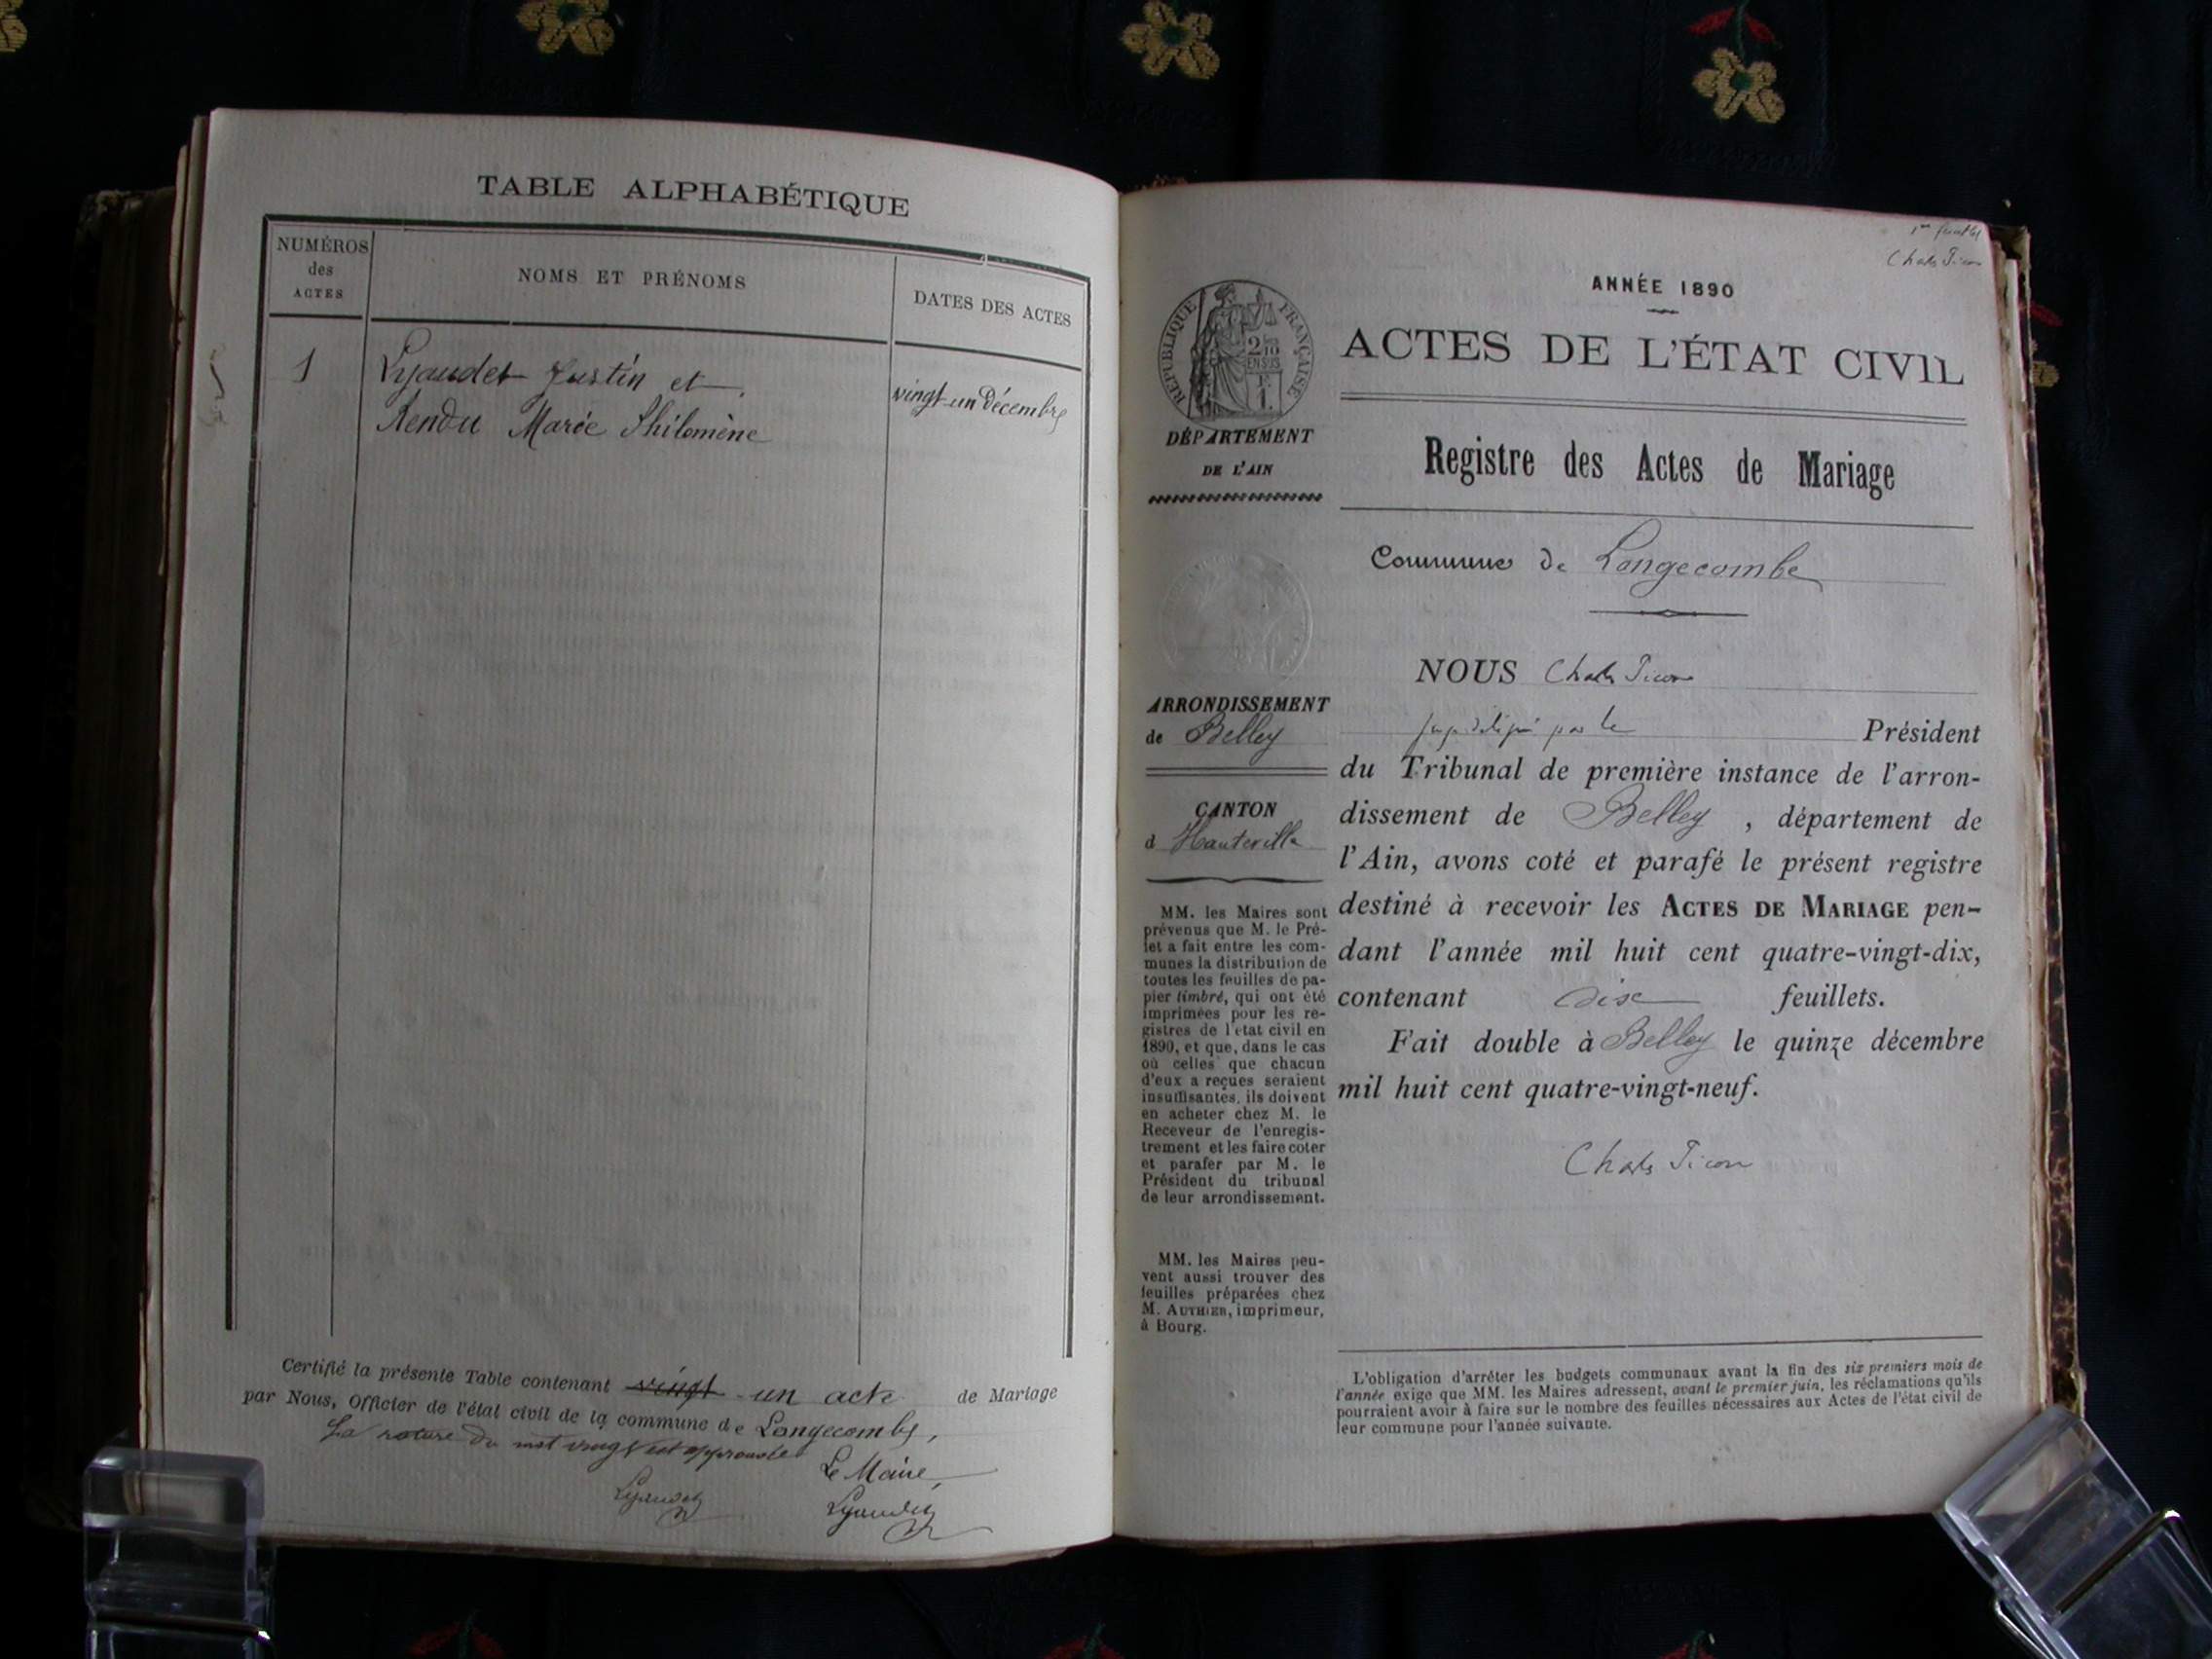 TABLE ALPHABÉTIQUE
NUMÉROS
des
ACTES
NOMS ET PRÉNOMS
DATES DES ACTES
1
Lyaudet Justin et
vingt-un Décembre
Rendu Marie Philomène
Certifié la présente Table contenant vingt-un acte de Mariage
par Nous, Officier de l'état civil de la commune de Longecombe,
La rature du mot vingt est approuvée
Le Maire,
Lyaudet
Lyaudet
1er feuillet
Charles Picon
ANNÉE 1890
ACTES DE L'ÉTAT CIVIL
RÉPUBLIQUE FRANÇAISE
2/10
EN SUS
1 F.
DÉPARTEMENT
DE L'AIN
Registre des Actes de Mariage
Commune de Longecombe
ARRONDISSEMENT
de Belley
CANTON
d Hauteville
MM. les Maires sont
prévenus que M. le Pré-
fet a fait entre les com-
munes la distribution de
toutes les feuilles de pa-
pier timbré, qui ont été
imprimées pour les re-
gistres de l'état civil en
1890, et que, dans le cas
où celles que chacun
d'eux a reçues seraient
insuffisantes, ils doivent
en acheter chez M. le
Receveur de l'enregis-
trement et les faire coter
et parafer par M. le
Président du tribunal
de leur arrondissement.
MM. les Maires peu-
vent aussi trouver des
feuilles préparées chez
M. AUTHIER, imprimeur,
à Bourg.
NOUS Charles Picon
juge délégué par le Président
du Tribunal de première instance de l'arron-
dissement de Belley, département de
l'Ain, avons coté et parafé le présent registre
destiné à recevoir les ACTES DE MARIAGE pen-
dant l'année mil huit cent quatre-vingt-dix,
contenant dix feuillets.
Fait double à Belley le quinze décembre
mil huit cent quatre-vingt-neuf.
Charles Picon
L'obligation d'arrêter les budgets communaux avant la fin des six premiers mois de
l'année exige que MM. les Maires adressent, avant le premier juin, les réclamations qu'ils
pourraient avoir à faire sur le nombre des feuilles nécessaires aux Actes de l'état civil de
leur commune pour l'année suivante.